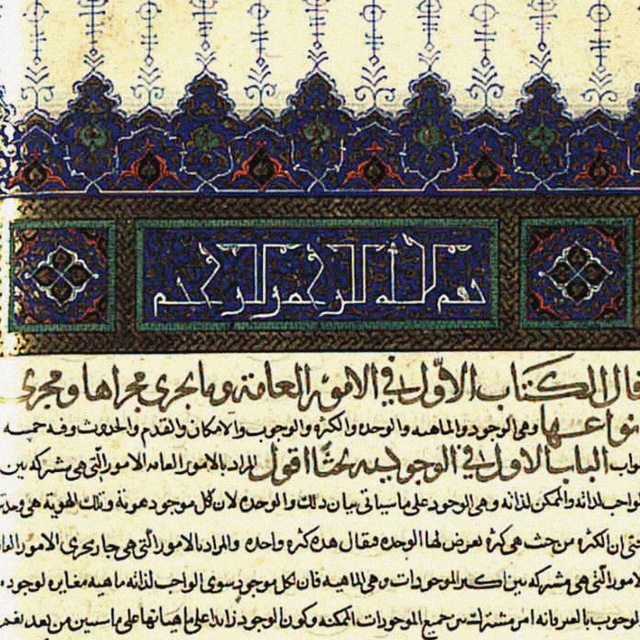 بسم الله الرحمن الرحيم
قال الكتاب الاول في الامور العامة وما يجرى مجراها ومجرى
انواعها وهي الوجود والماهيه والوحده والكثره والوجوب والامكان والقدم والحدوث وفيه خمسه
ابواب الباب الاول في الوجود فيه بحثا اقول المراد بالامور العامه الامور التي هي مشتركه بين
الواجب لذاته والممكن لذاته وهي الوجود على ما سياتي بيان ذلك والوحده لان كل موجود هوية وتلك الهوية هي وحدته
حتى ان الكثره من حيث هي كثرة تعرض لها الوحده فيقال هذه كثره واحده والمراد بالامور التي هي جاريه مجرى الامور العامه
الامور التي هي مشتركه بين اكثر الموجودات وهي الماهيه فان لكل موجود سوى الواجب لذاته ماهيه مغايره لوجوده
من جميع الموجودات الممكنه وكون الوجود زايدا على ماهياتها على ما سيبين من بعد